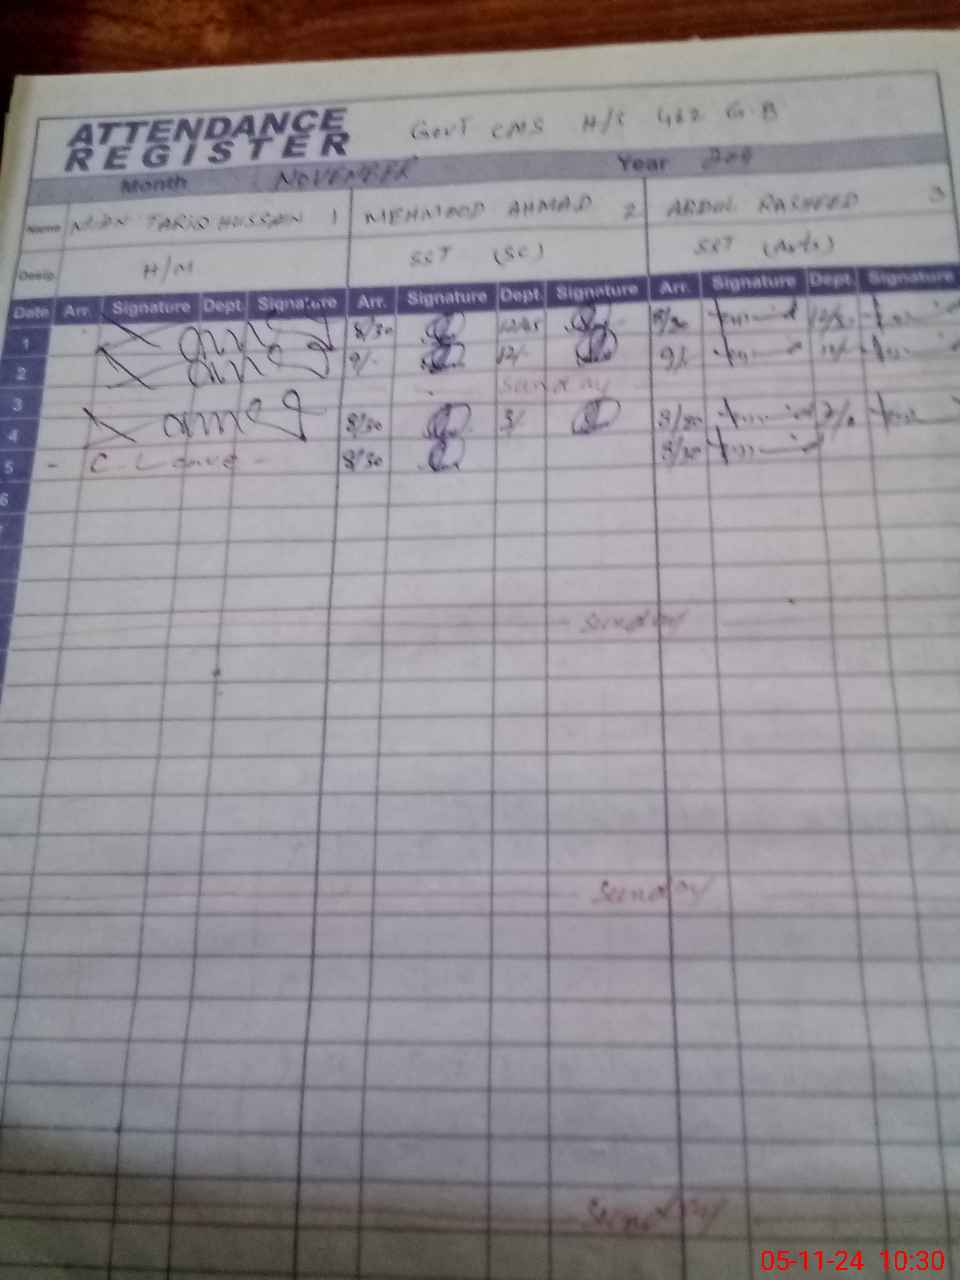 ATTENDANCE
REGISTER
GOVT CMS H/S 462 G.B
Month NOVEMBER Year
Name MIAN TARIQ HUSSAIN 1 MEHMOOD AHMAD 2 ABDUL RASHEED 3
Desig. H/M SST (SC) SST (Arts)
Date Arr. Signature Dept. Signature Arr. Signature Dept. Signature Arr. Signature Dept. Signature
1 8/30 12/45 8/30
2 9/- 12/-
3 Sunday
4 8/30 3/ 8/30
5 - C. Leave - 8/30 8/30
6
Sunday
Sunday
Sunday
05-11-24 10:30